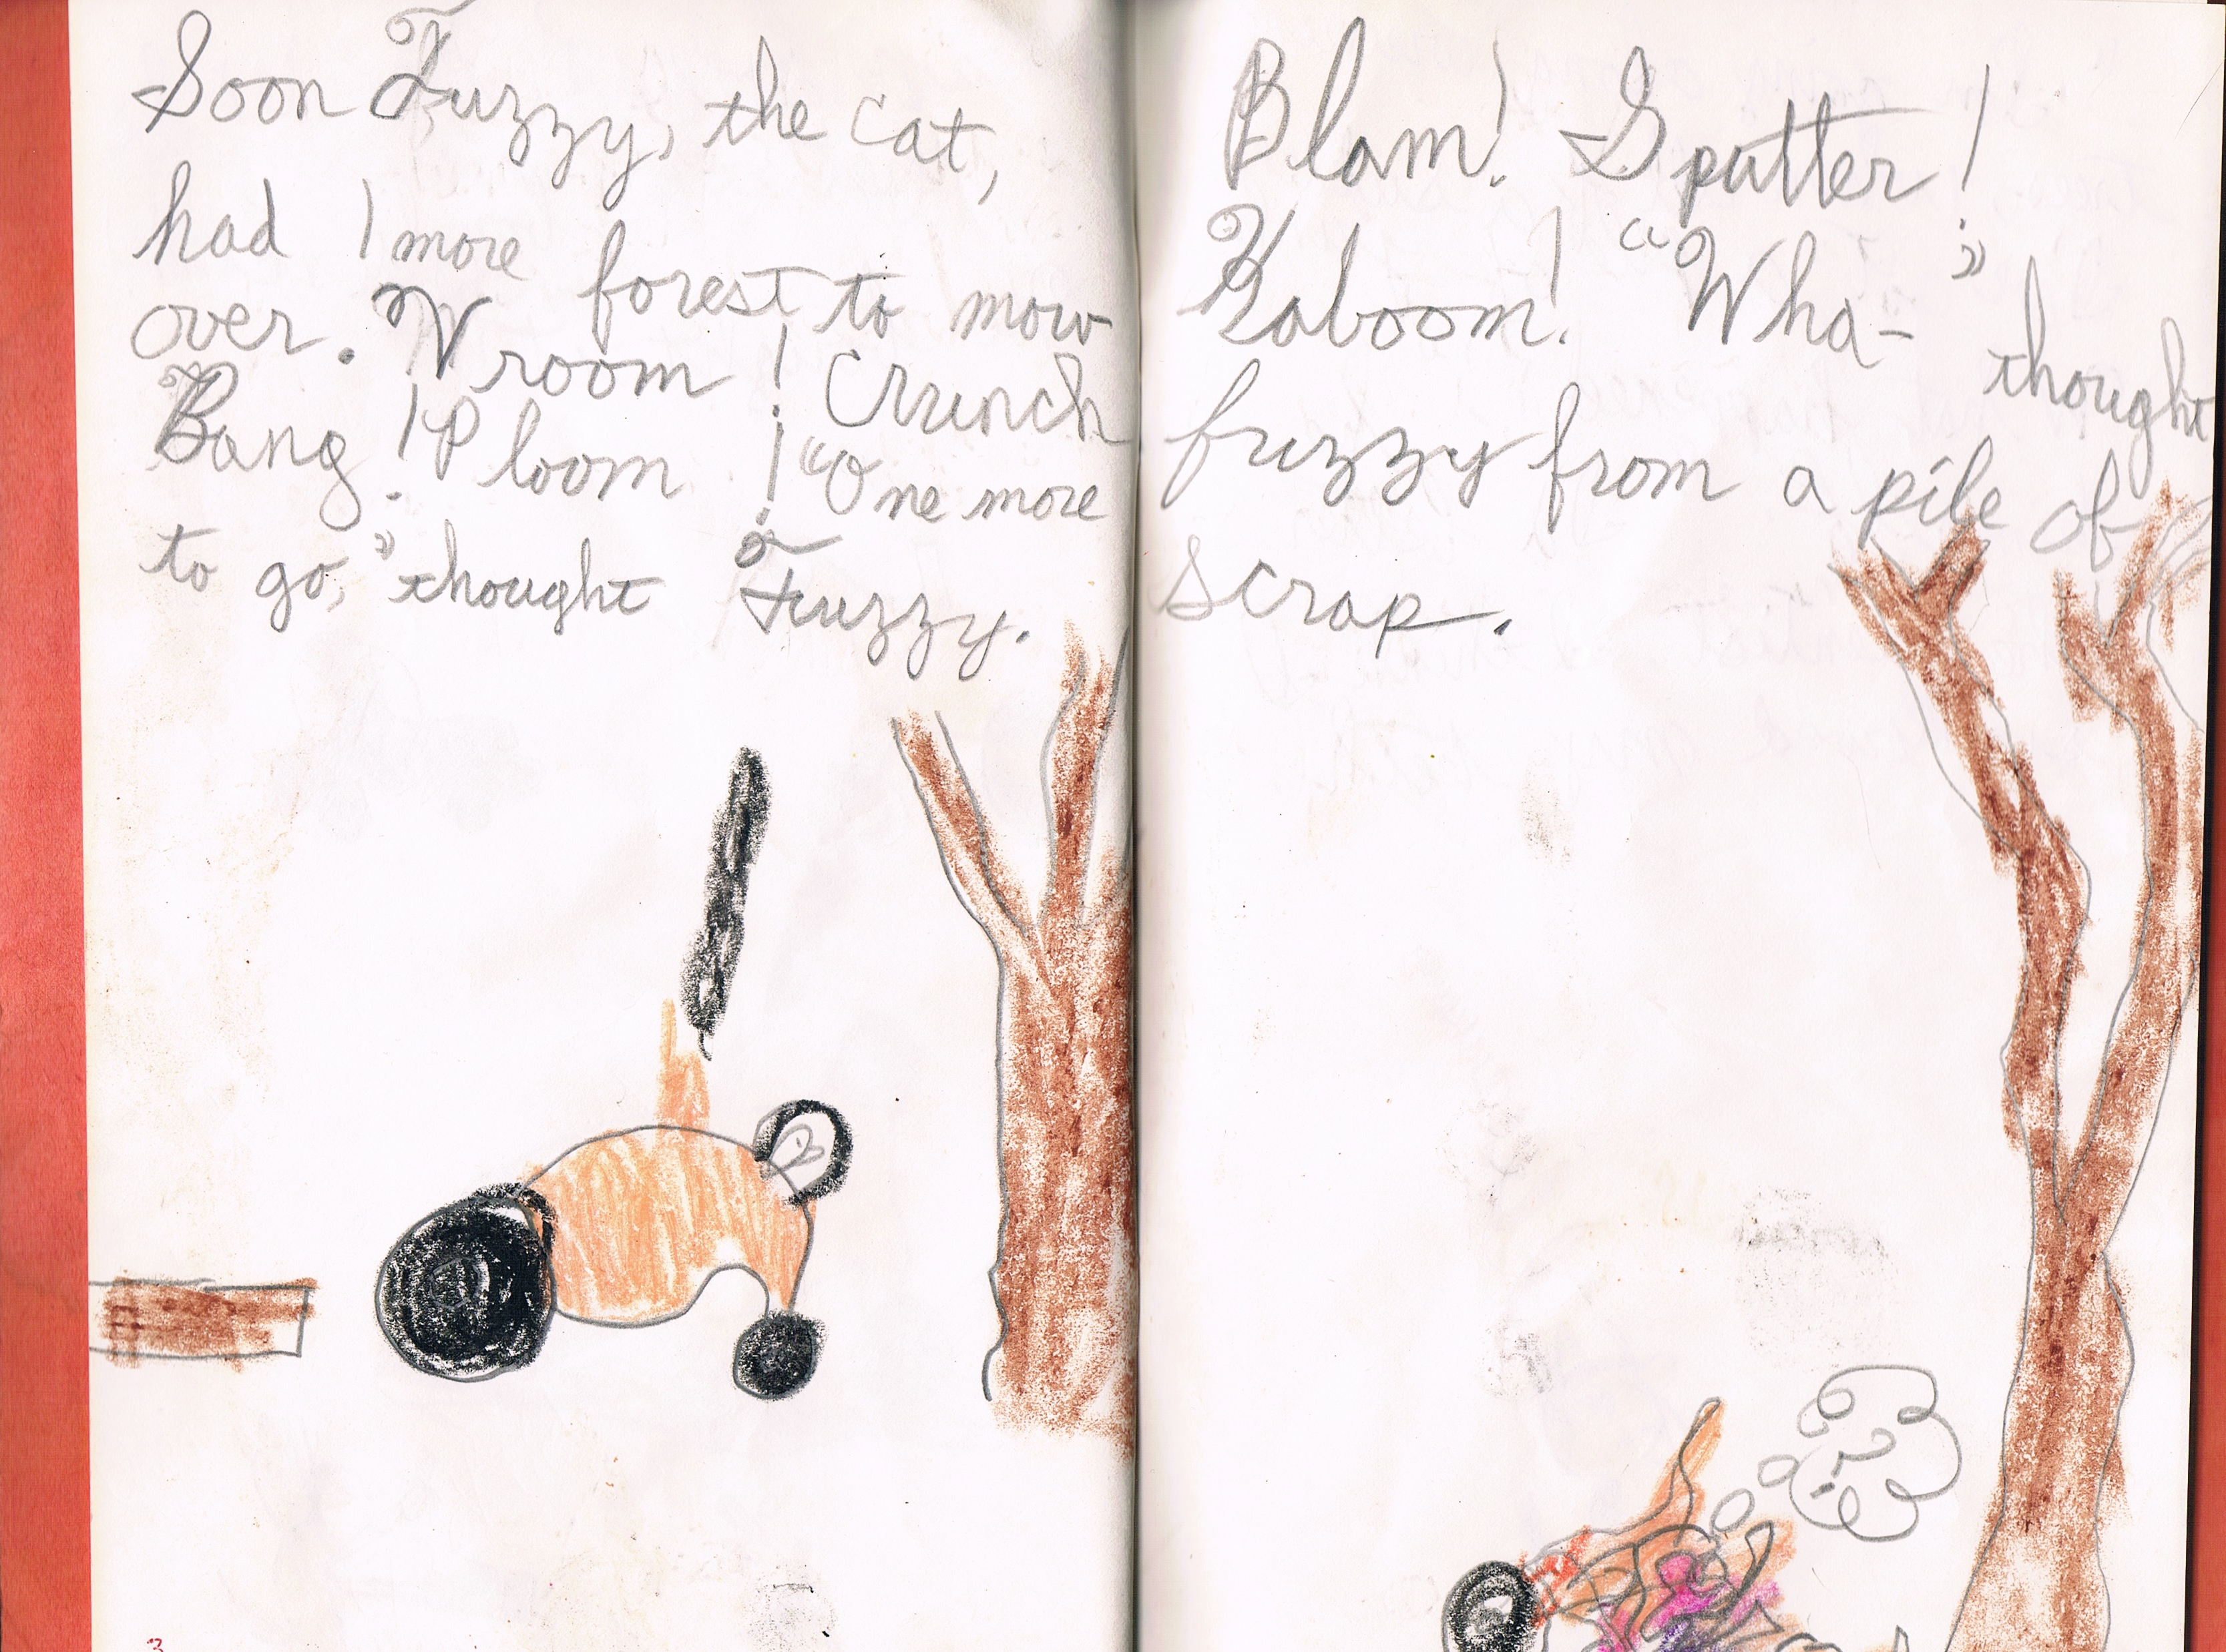 Soon Fuzzy, the cat,
had 1 more forest to mow
over. Vroom! Crrunch
Bang! Ploom! "One more
to go," thought Fuzzy.
3
Blam! Sputter!
Kaboom! "Wha-" thought
fuzzy from a pile of
scrap.
?